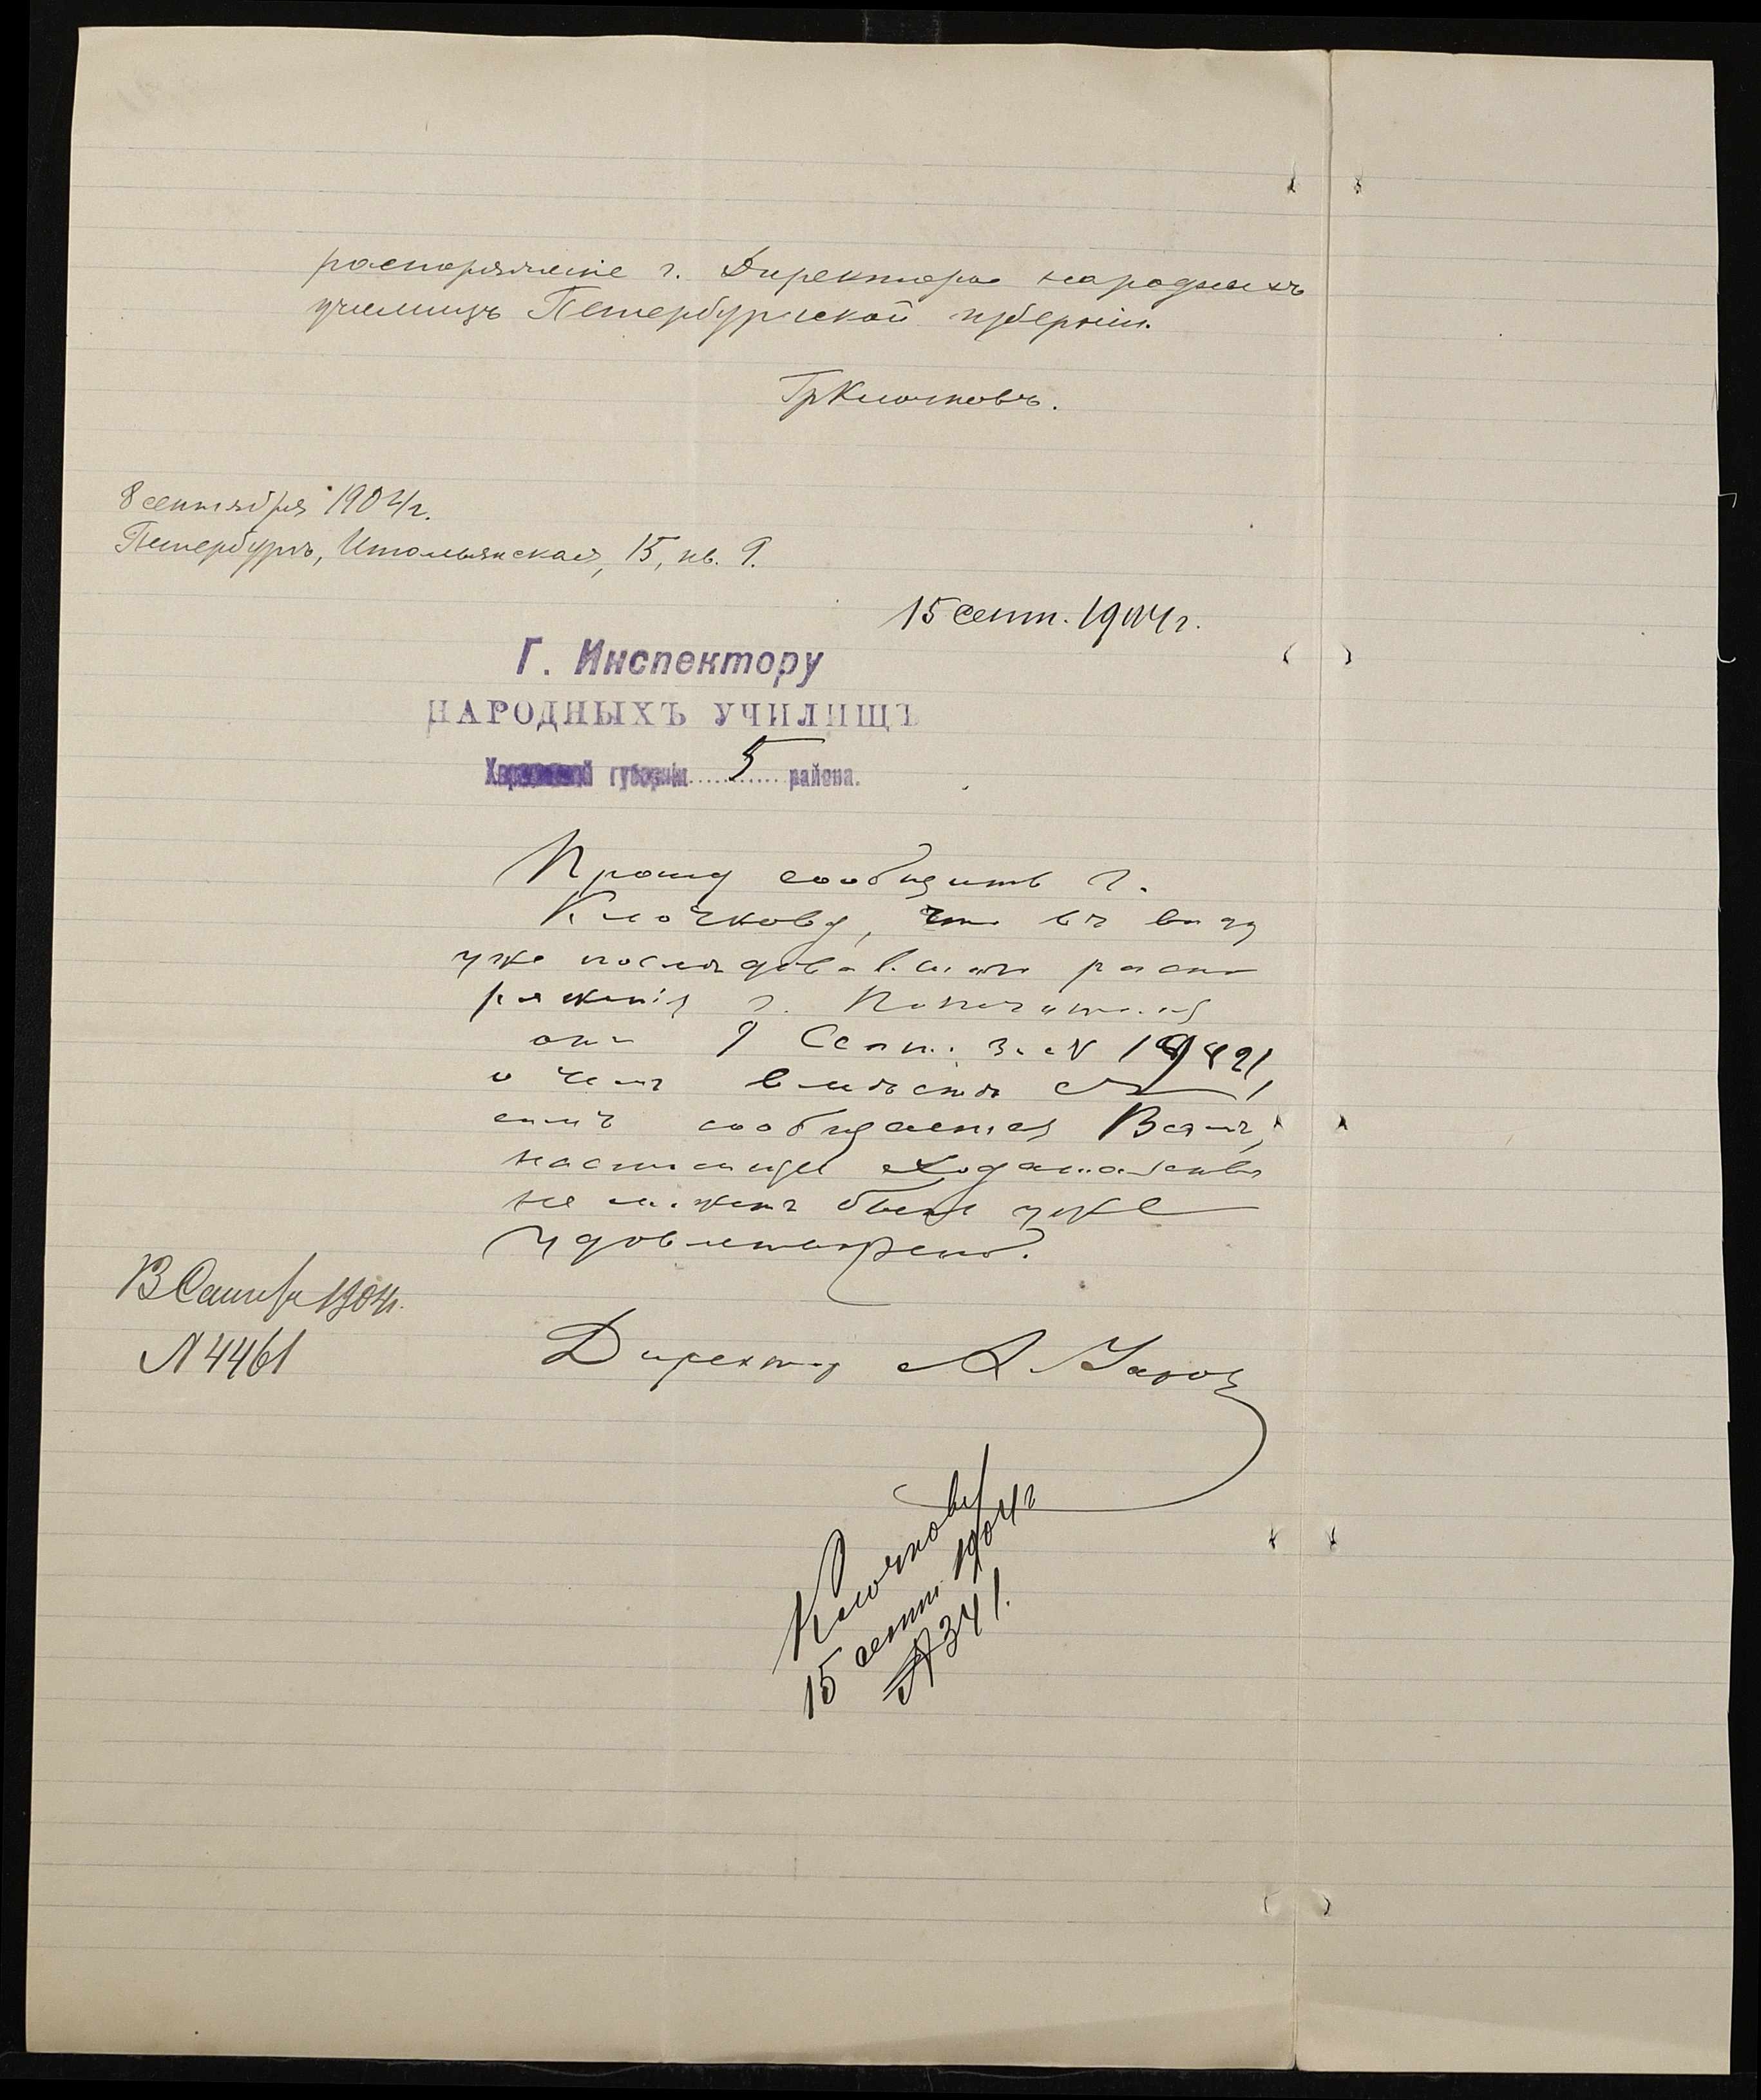 распоряженіе г. Директора народныхъ
училищъ Петербургской губерніи.
Гр Клочковъ.
8 сентября 1904 г.
Петербургъ, Итальянская, 15, кв. 9.
15 сент. 1904 г.
Г. Инспектору
НАРОДНЫХЪ УЧИЛИЩЪ
губерніи 5 района.
Прошу сообщить г.
Клочкову, что въ виду
уже послѣдовавшаго распо
ряженія г. Попечителя
отъ 9 Сент. за №
о чемъ вмѣстѣ съ
симъ сообщается Вамъ,
настоящее ходатайство
не можетъ быть уже
удовлетворено.
13 Сентября 1904 г.
№ 4461
Директоръ А
Клочкову
15 сент. 1904 г
№ 341.